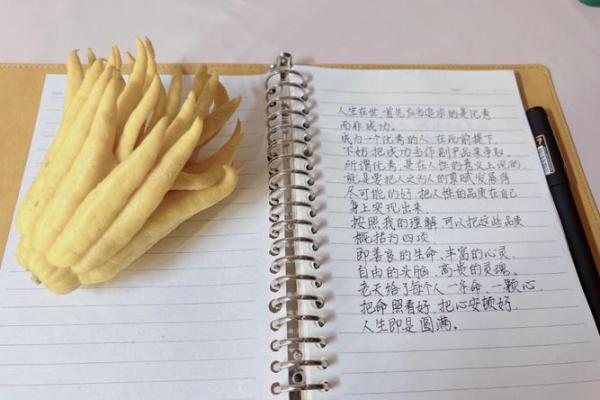 人生在世,首先应当追求的是优秀,
而非成功。
成为一个优秀的人,在此前提下,
不妨把成功当作副产品来争取。
所谓优秀,是在人性的意义上说的,
就是要把人之为人的禀赋发展得
尽可能的好,把人性的品质在自己
身上实现出来。
按照我的理解,可以把这些品质
概括为四项,
即善良的生命、丰富的心灵、
自由的头脑、高贵的灵魂。
老天给了每个人一条命,一颗心,
把命照看好,把心安顿好,
人生即是圆满。